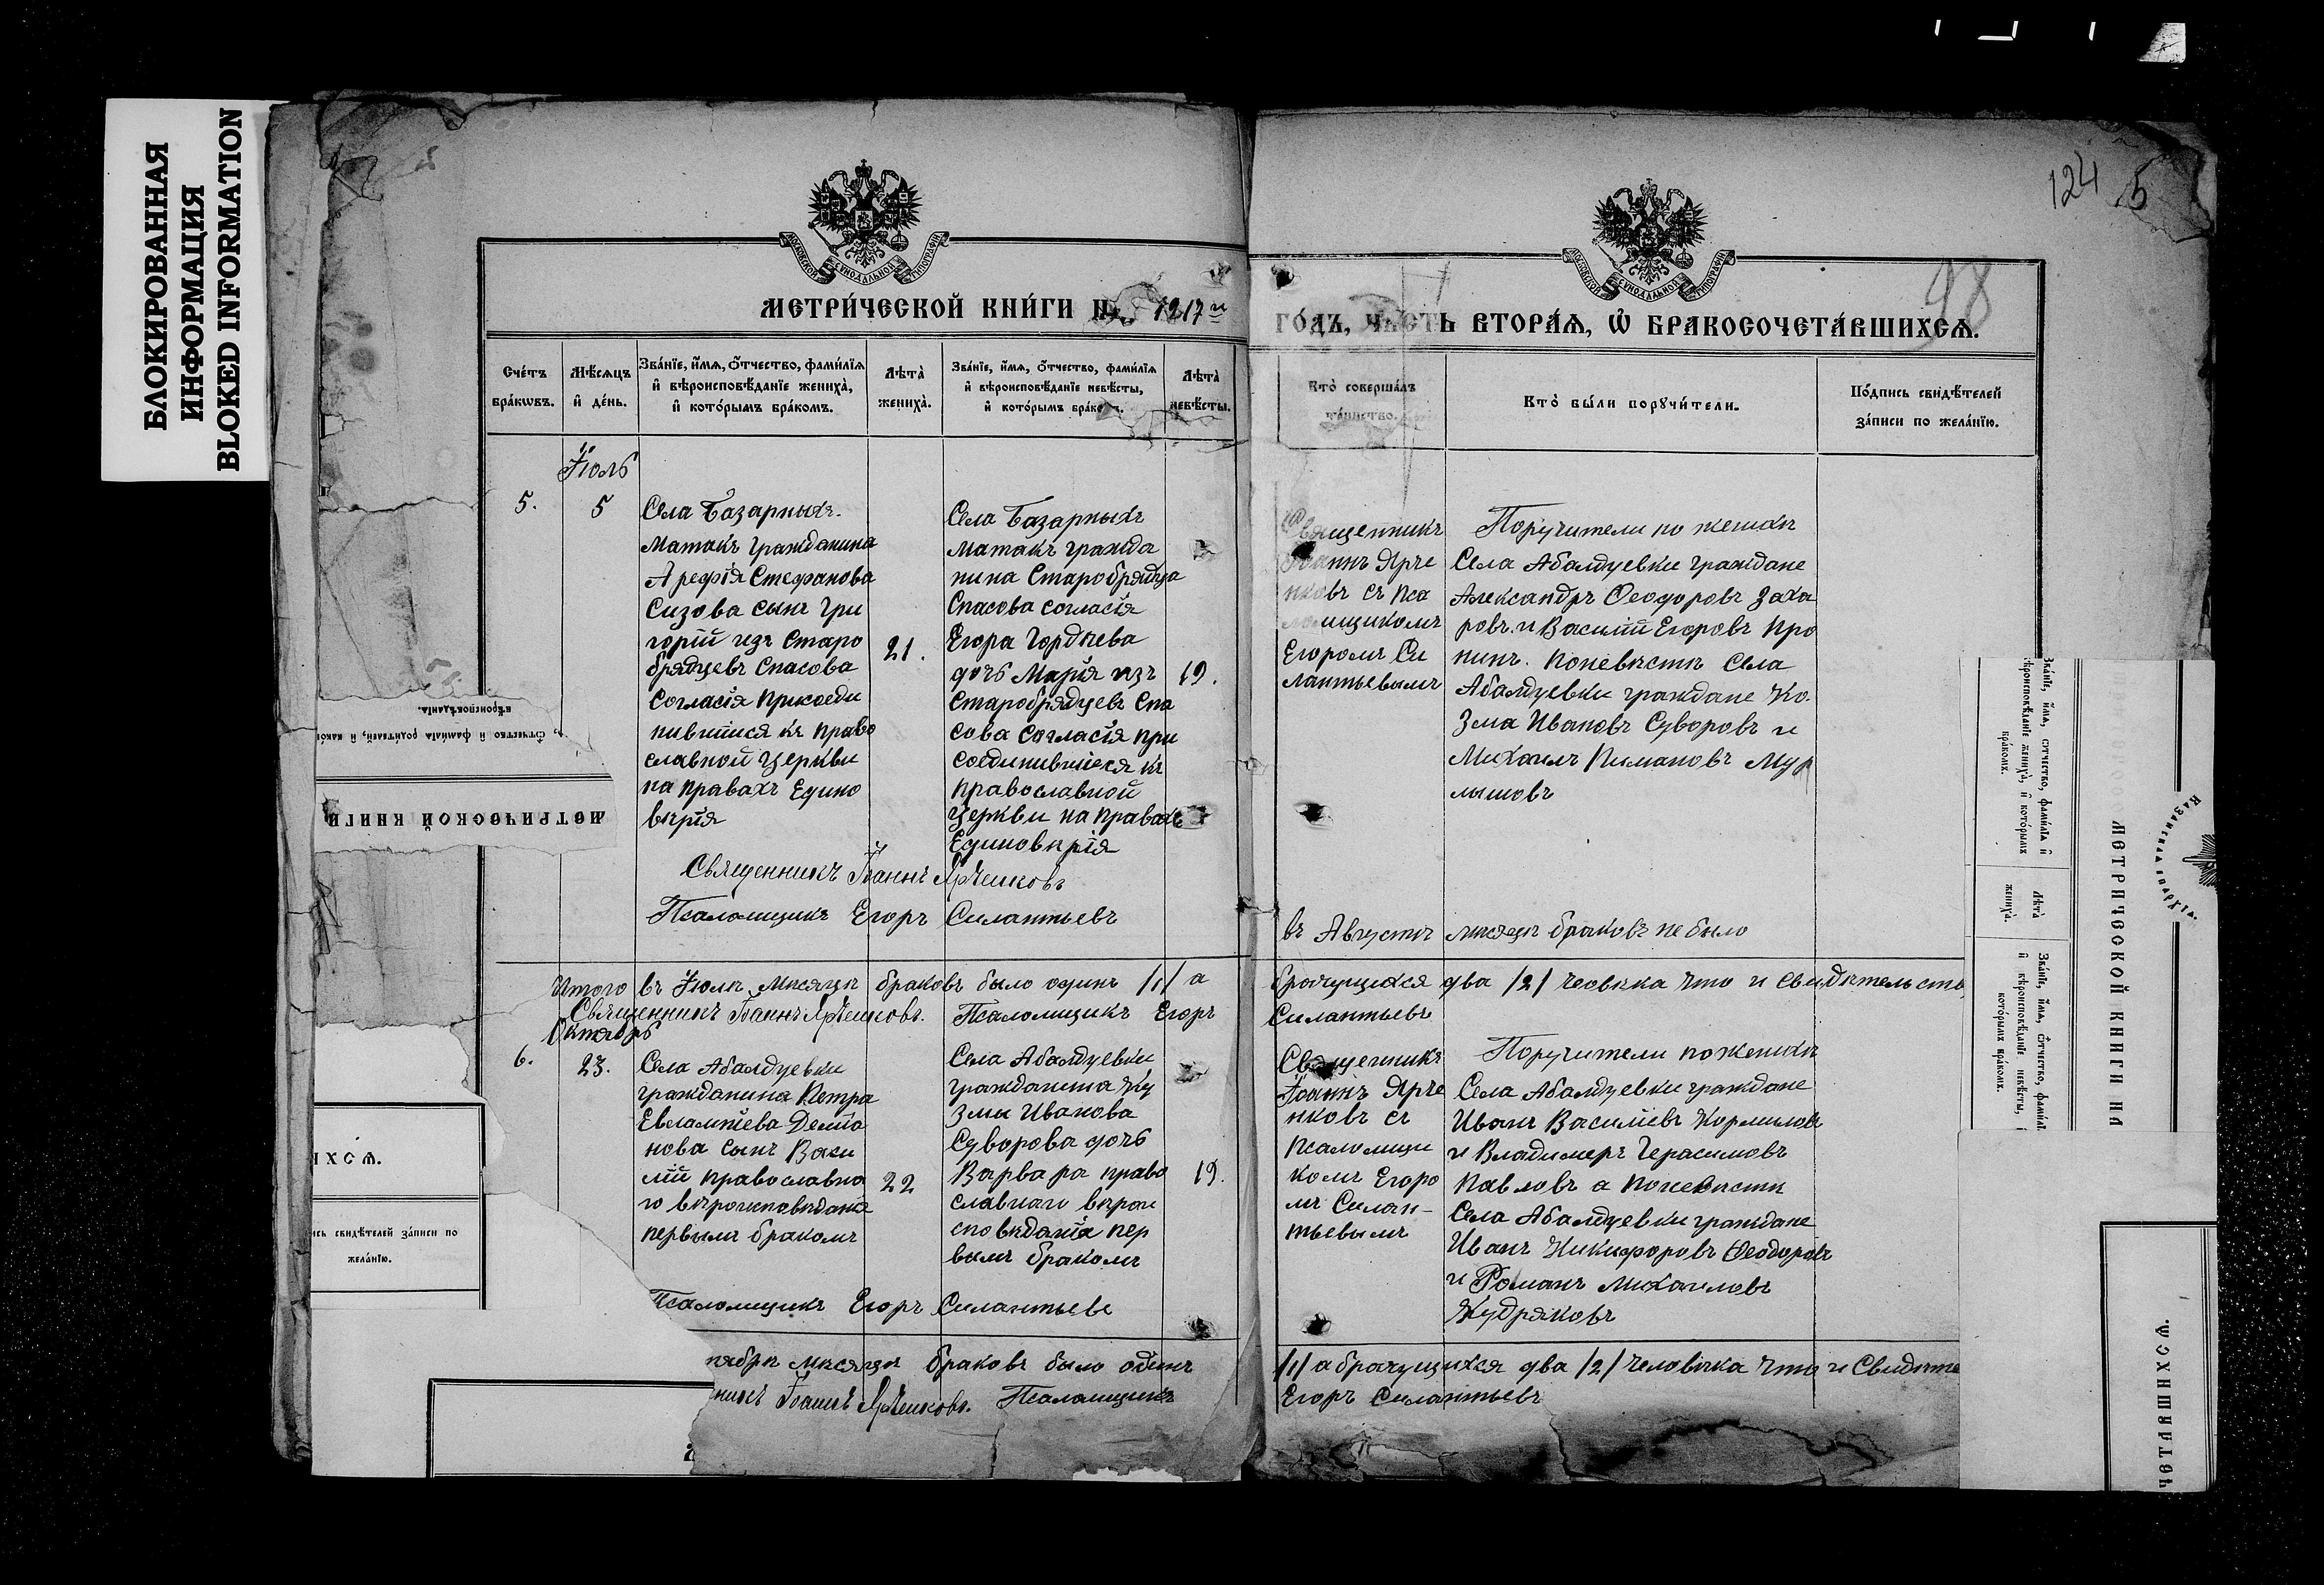 БЛОКИРОВАННАЯ
ИНФОРМАЦИЯ
BLOKED INFORMATION
124 5
98
МОСКОВСКОЙ СУНОДАЛЬНОЙ ТИПОГРАФІИ
МОСКОВСКОЙ СУНОДАЛЬНОЙ ТИПОГРАФІИ
МЕТРИ́ЧЕСКОЙ КНИ́ГИ НА 1917 й
ГО́ДЪ, ЧАСТЬ ВТОРА́Ѧ, Ѽ БРАКОСОЧЕТА́ВШИХСѦ.
Сче́тъ бра́кѡвъ.
Мѣ́сѧцъ и҆ де́нь.
Зва́нїе, и҆́мѧ, ѻ҆́тчество, фамилїѧ и҆ вѣроисповѣ́данїе жениха̀, и҆ кото́рымъ бра́комъ.
Лѣта̀ жениха̀.
Зва́нїе, и҆́мѧ, ѻ҆́тчество, фамилїѧ и҆ вѣроисповѣ́данїе невѣ́сты, и҆ кото́рымъ бра́комъ.
Лѣта̀ невѣ́сты.
Кто̀ соверша́лъ та́инство.
Кто̀ бы́ли порꙋчи́тели.
По́дпись свидѣ́телей за́писи по жела́нїю.
Іюль
5.
5
Села Базарныхъ
Матакъ Гражданина
Арефія Стефанова
Сизова сынъ Гри
горій изъ Старо
брядцевъ Спасова
Согласія присоеди
нившійся къ право
славной Церкви
на правахъ Едино
вѣрія
21.
Села Базарныхъ
Матакъ гражда
нина Старобрядца
Спасова согласія
Егора Гордѣева
дочь Марія изъ
Старобрядцевъ Спа
сова Согласія при
соединившеся къ
православной
Церкви на правахъ
Единовѣрія
19.
Священникъ
Іоаннъ Ярче
нковъ съ Пса
ломщикомъ
Егоромъ Си
лантьевымъ
Поручители по женихѣ
Села Абалдуевки граждане
Александръ Ѳеодоровъ Заха
ровъ и Василій Егоровъ Про
нинъ. По невѣстѣ Села
Абалдуевки граждане Ко
зма Ивановъ Суворовъ и
Михаилъ Пимановъ Мур
лышовъ
Священникъ Іоаннъ Ярченковъ
Псаломщикъ Егоръ Силантьевъ
въ Августѣ мѣсяцѣ браковъ не было
Итого въ Іюлѣ Мѣсяцѣ браковъ было одинъ /1/ а
брачущихся два /2/ человѣка что и свидѣтельств
Священникъ Іоаннъ Ярченковъ. Псаломщикъ Егоръ
Силантьевъ
Октябрь
6.
23.
Села Абалдуевки
гражданина Петра
Евлампіева Демиа
нова сынъ Васи
лій православна
го вѣроисповѣданія
первымъ бракомъ
22
Села Абалдуевки
гражданина Ку
змы Иванова
Суворова дочь
Варвара право
славнаго вѣрои
сповѣданія пер
вымъ бракомъ
19.
Священникъ
Іоаннъ Ярче
нковъ съ
Псаломщи
комъ Егоро
мъ Силан-
тьевымъ
Поручители по женихѣ
Села Абалдуевки граждане
Иванъ Василіевъ Кормиловъ
и Владимеръ Герасимовъ
Павловъ а по невѣсти
Села Абалдуевки граждане
Иванъ Никифоровъ Ѳеодоровъ
и Романъ Михаиловъ
Кудряковъ
Псаломщикъ Егоръ Силантьевъ
нябрѣ мѣсяцѣ браковъ было одинъ
/1/ а брачущихся два /2/ человѣка что и Свидѣте
никъ Іоаннъ Ярченковъ. Псаломщикъ
Егоръ Силантьевъ
вѣроисповѣ́данїѧ.
ѻ҆́тчество и҆ фами́лїѧ роди́телей, и҆ како́
МЕТРИЧЕСКОЙ КНИГИ
ИХСѦ.
ись свидѣ́телей за́писи по
жела́нїю.
Зва́нїе, и҆́мѧ, ѻ҆́тчество, фамилїѧ и҆
вѣроисповѣ́данїе жениха̀, и҆ кото́рымъ
бра́комъ.
Лѣта̀
жениха̀.
Зва́нїе, и҆́мѧ, ѻ҆́тчество, фамилї
и҆ вѣроисповѣ́данїе невѣ́сты,
кото́рымъ бра́комъ.
МЕТРИЧЕСКОЙ КНИГИ НА
КАЗАНСКАѦ ЕПАРХІѦ.
ЧЕТАВШИХСѦ.